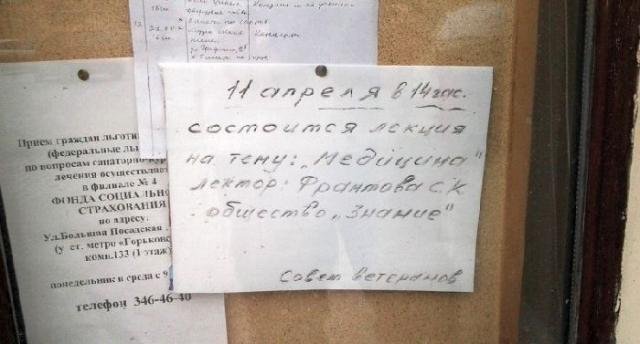 11 апреля в 14 час.
состоится лекция
на тему: „Медицина"
лектор: Франтова С.К
общество „Знание"
Совет ветеранов
Прием граждан льготн
(федеральные ль
по вопросам санаторно-кур
лечения осуществляет
в филиале № 4
ФОНДА СОЦИАЛЬНО
СТРАХОВАНИЯ
по адресу:
Ул.Большая Посадская
(у ст. метро «Горьков
комн.133 (1 этаж)
понедельник и среда с 9
телефон 346-46-40